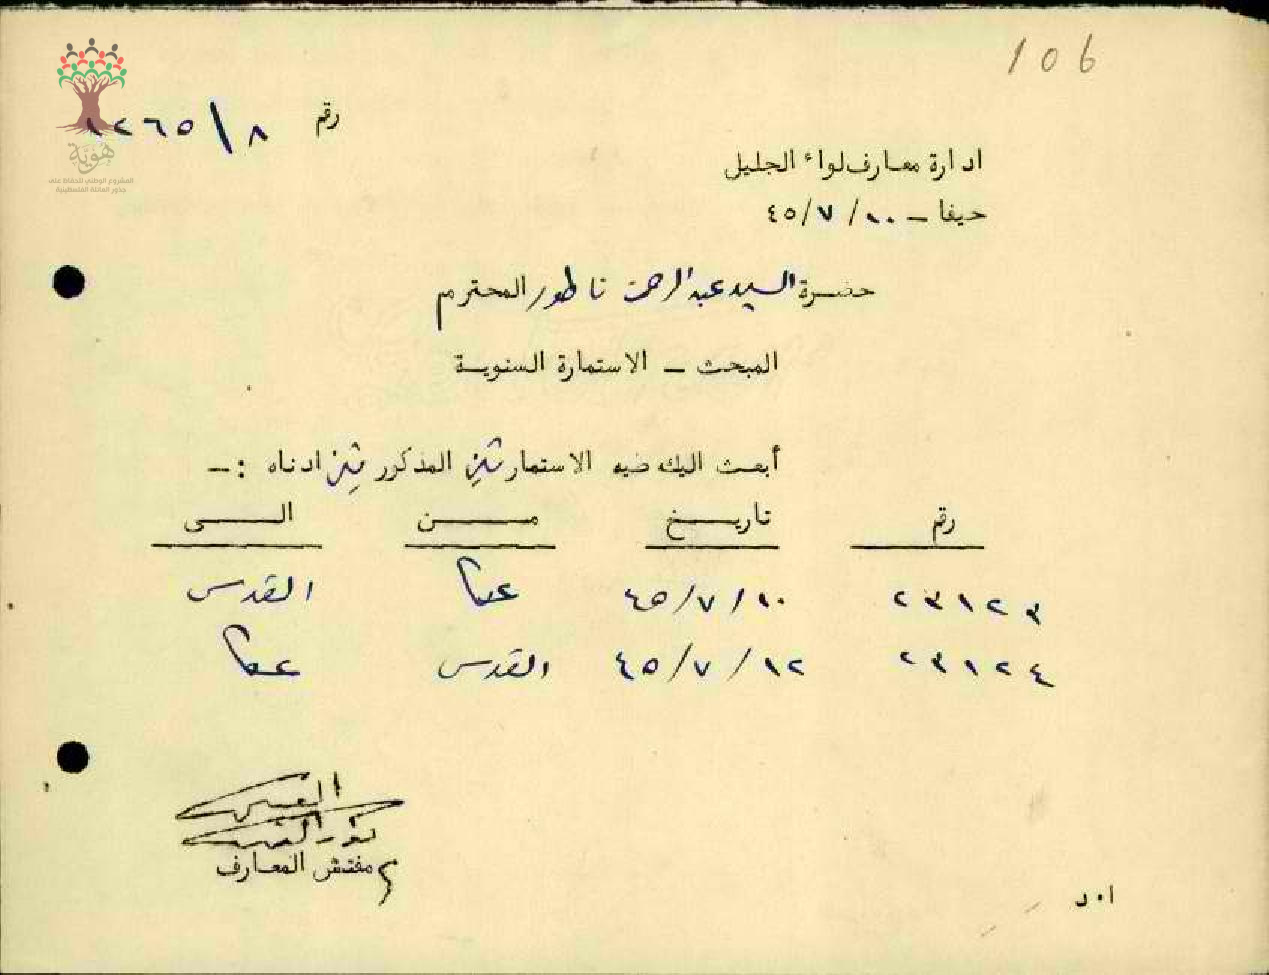 106
رقم ٨/١٢٦٥
هوية
المشروع الوطني للحفاظ على
جذور العائلة الفلسطينية
ادارة معارف لواء الجليل
حيفا - ٤٥/٧/١٠
حضرة السيد عبد الرحمن ناطور المحترم
المبحث - الاستمارة السنوية
أبعث اليك ضمنه الاستمارتين المذكورتين ادناه :-
رقم تاريخ من الى
٢٣١٢٣ ٤٥/٧/١٠ عكا القدس
٢٣١٢٤ ٤٥/٧/١٢ القدس عكا
مفتش المعارف
ا٠د